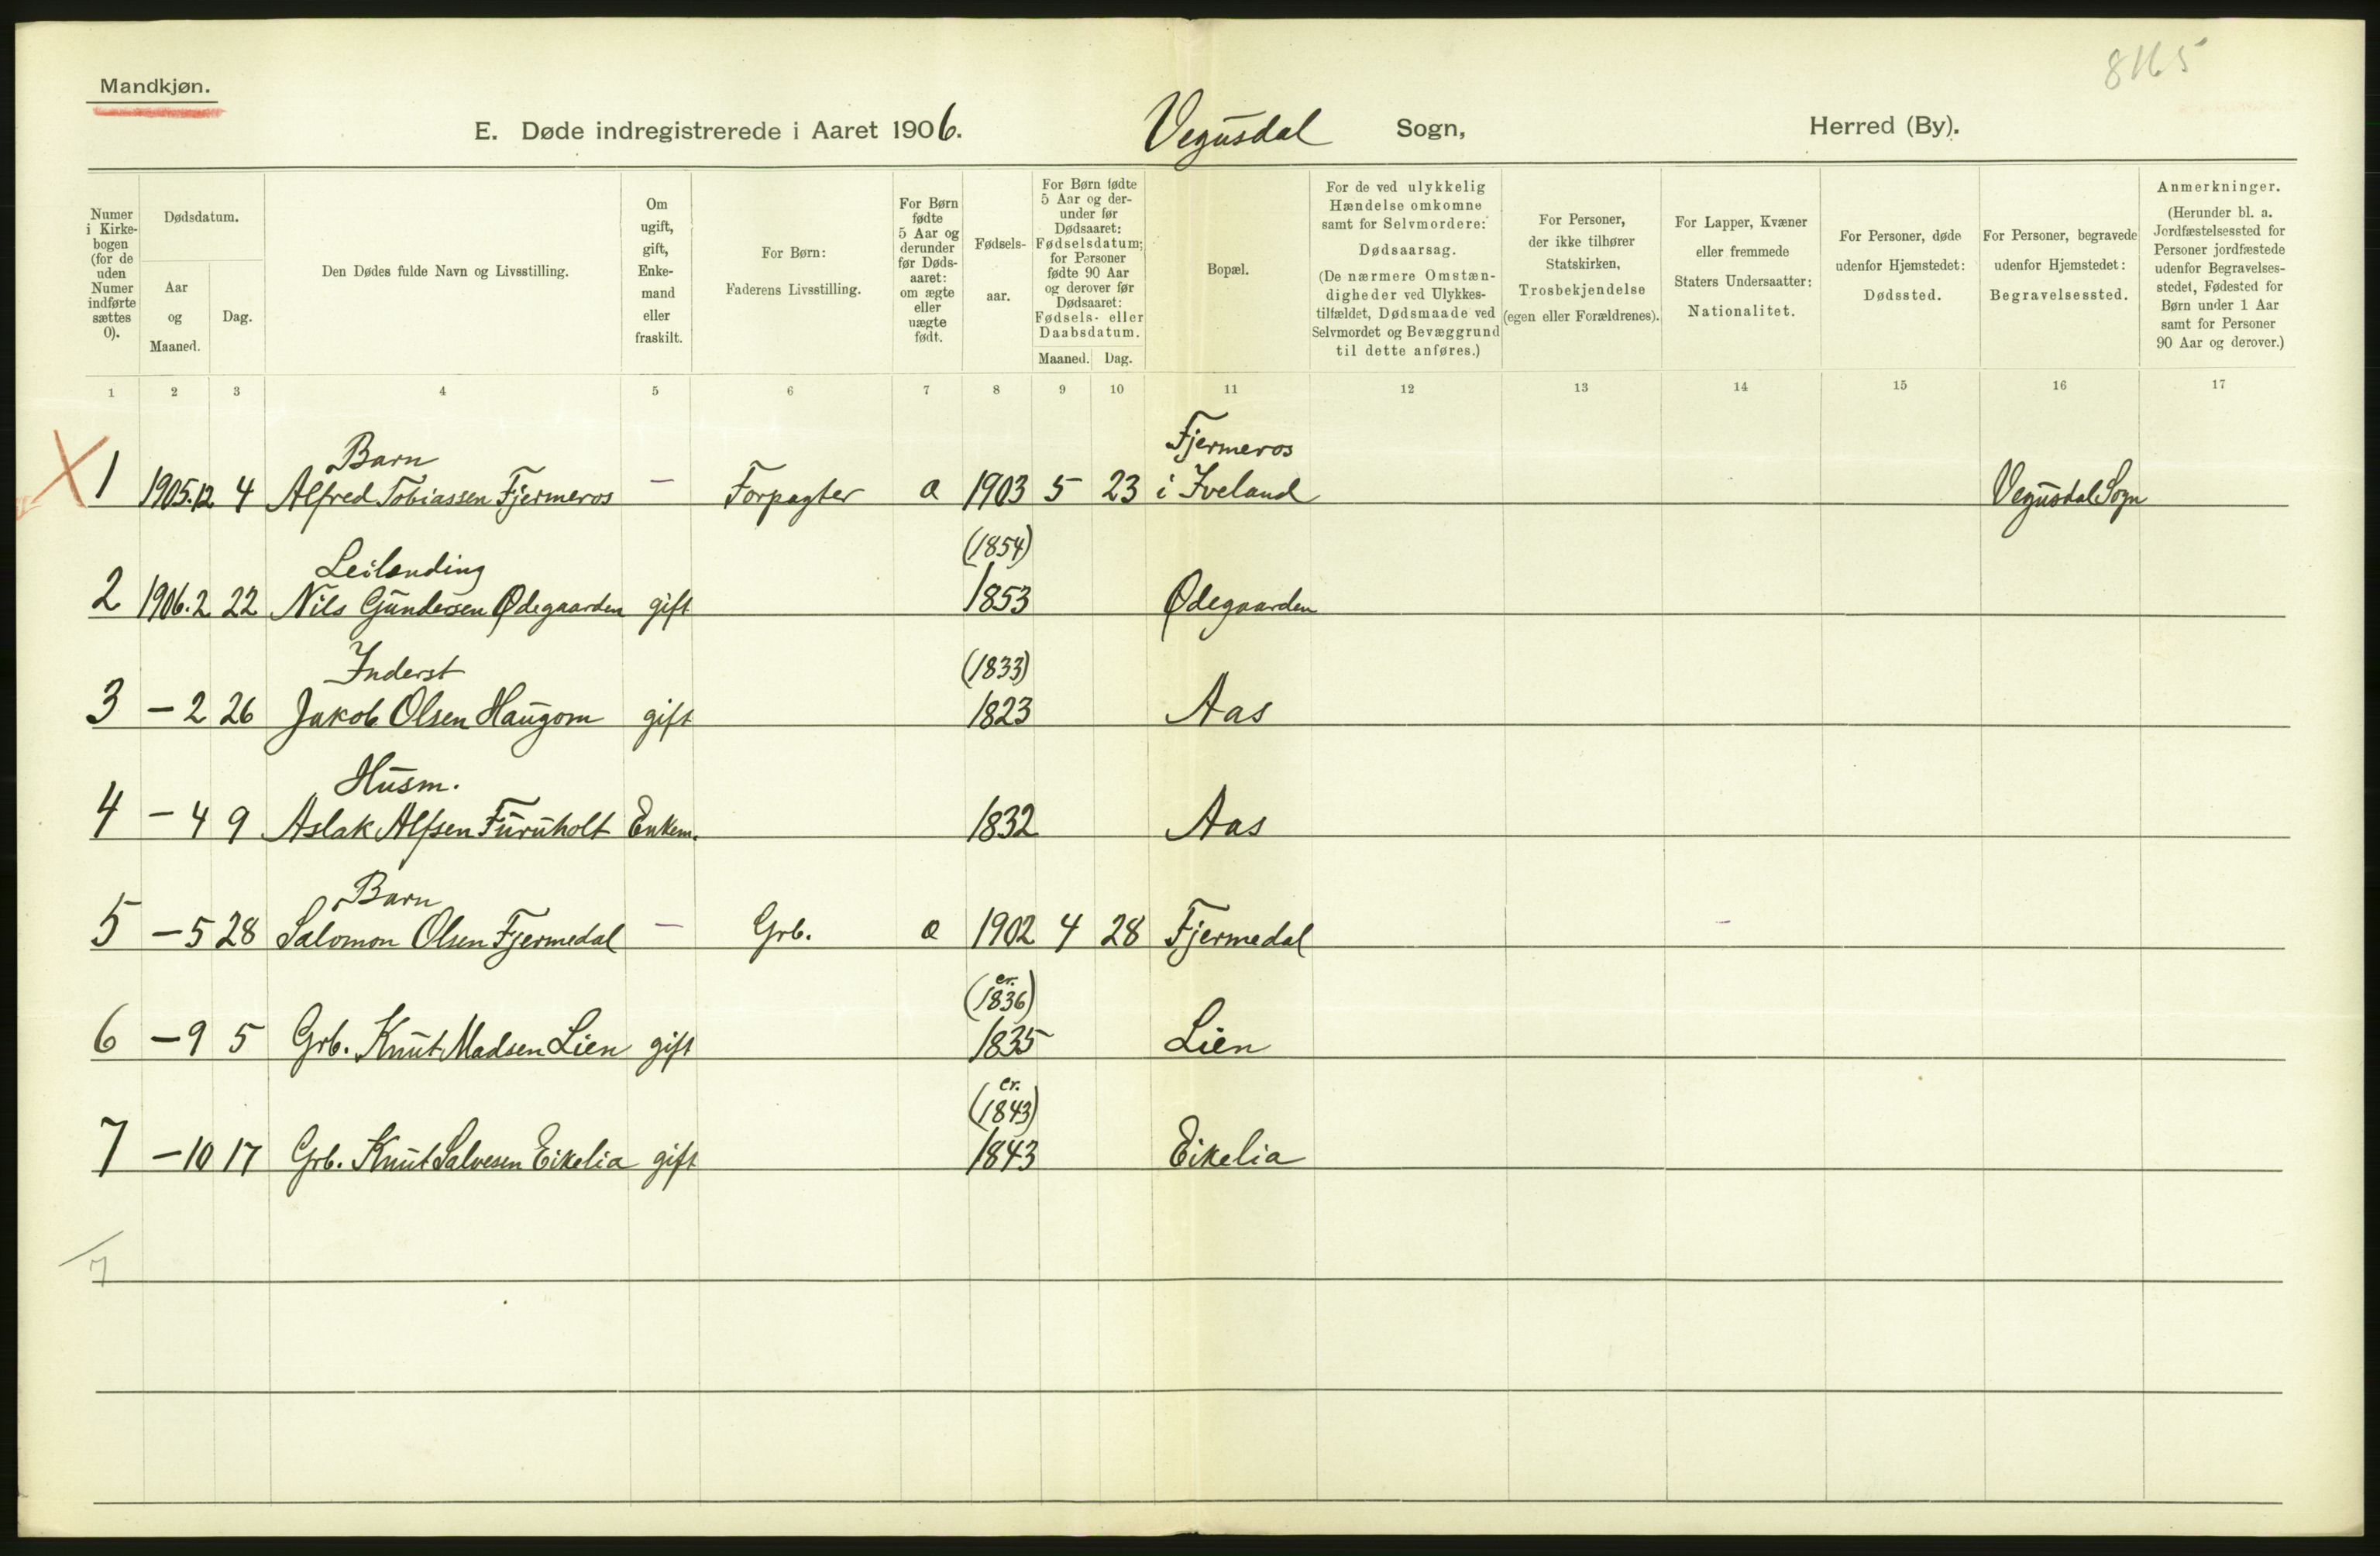 8165
Mandkjøn.
E. Døde indregistrerede i Aaret 1906. Vegusdal Sogn, Herred (By).
Numer i Kirkebogen (for de uden Numer indførte sættes 0).
Dødsdatum.
Aar og Maaned.
Dag.
Den Dødes fulde Navn og Livsstilling.
Om ugift, gift, Enkemand eller fraskilt.
For Børn: Faderens Livsstilling.
For Børn fødte 5 Aar og derunder før Dødsaaret: om ægte eller uægte født.
Fødselsaar.
For Børn fødte 5 Aar og derunder før Dødsaaret: Fødselsdatum; for Personer fødte 90 Aar og derover før Dødsaaret: Fødsels- eller Daabsdatum.
Maaned. Dag.
Bopæl.
For de ved ulykkelig Hændelse omkomne samt for Selvmordere: Dødsaarsag. (De nærmere Omstændigheder ved Ulykkestilfældet, Dødsmaade ved Selvmordet og Bevæggrund til dette anføres.)
For Personer, der ikke tilhører Statskirken, Trosbekjendelse (egen eller Forældrenes).
For Lapper, Kvæner eller fremmede Staters Undersaatter: Nationalitet.
For Personer, døde udenfor Hjemstedet: Dødssted.
For Personer, begravede udenfor Hjemstedet: Begravelsessted.
Anmerkninger. (Herunder bl. a. Jordfæstelsessted for Personer jordfæstede udenfor Begravelsesstedet, Fødested for Børn under 1 Aar samt for Personer 90 Aar og derover.)
1 2 3 4 5 6 7 8 9 10 11 12 13 14 15 16 17
Barn Fjermeros
1 1905.12 4 Alfred Tobiassen Fjermeros — Forpagter a 1903 5 23 i Iveland Vegusdal Sogn
Leilending (1854)
2 1906.2 22 Nils Gundersen Ødegaarden gift 1853 Ødegaarden
Inderst (1833)
3 — 2 26 Jakob Olsen Haugom gift 1823 Aas
Husm.
4 — 4 9 Aslak Alfsen Furuholt Enkem. 1832 Aas
Barn
5 — 5 28 Salomon Olsen Fjermedal — Grb. a 1902 4 28 Fjermedal
(er. 1836)
6 — 9 5 Grb. Knut Madsen Lien gift 1835 Lien
(er. 1843)
7 — 10 17 Grb. Knut Salvesen Eikelia gift 1843 Eikelia
7